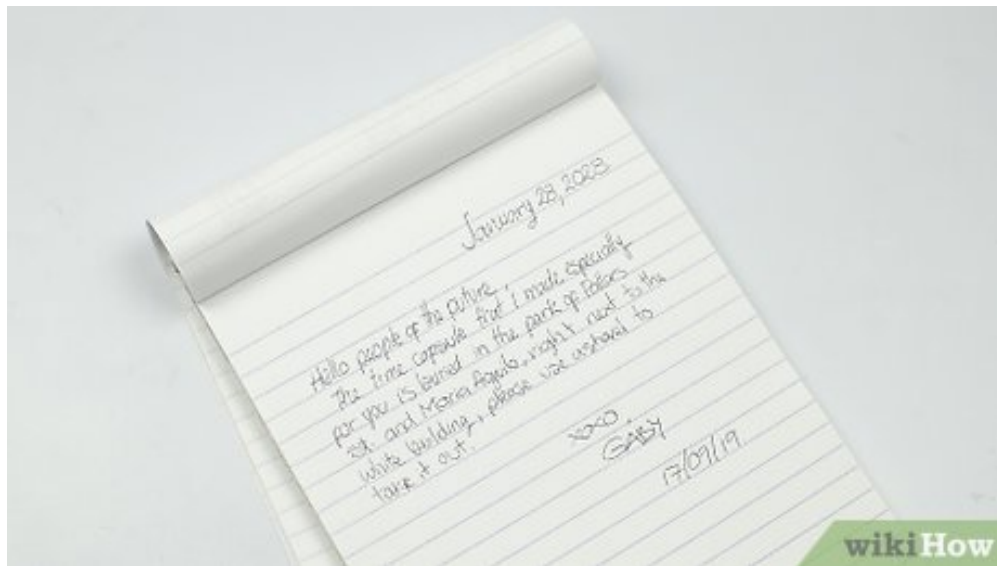 January 28, 2028
Hello people of the future,
The time capsule that I made especially
for you is buried in the park of
st. and Maria Aguilo, right next to the
white building, please use a shovel to
take it out.
xoxo
GABY
17/09/19
wikiHow